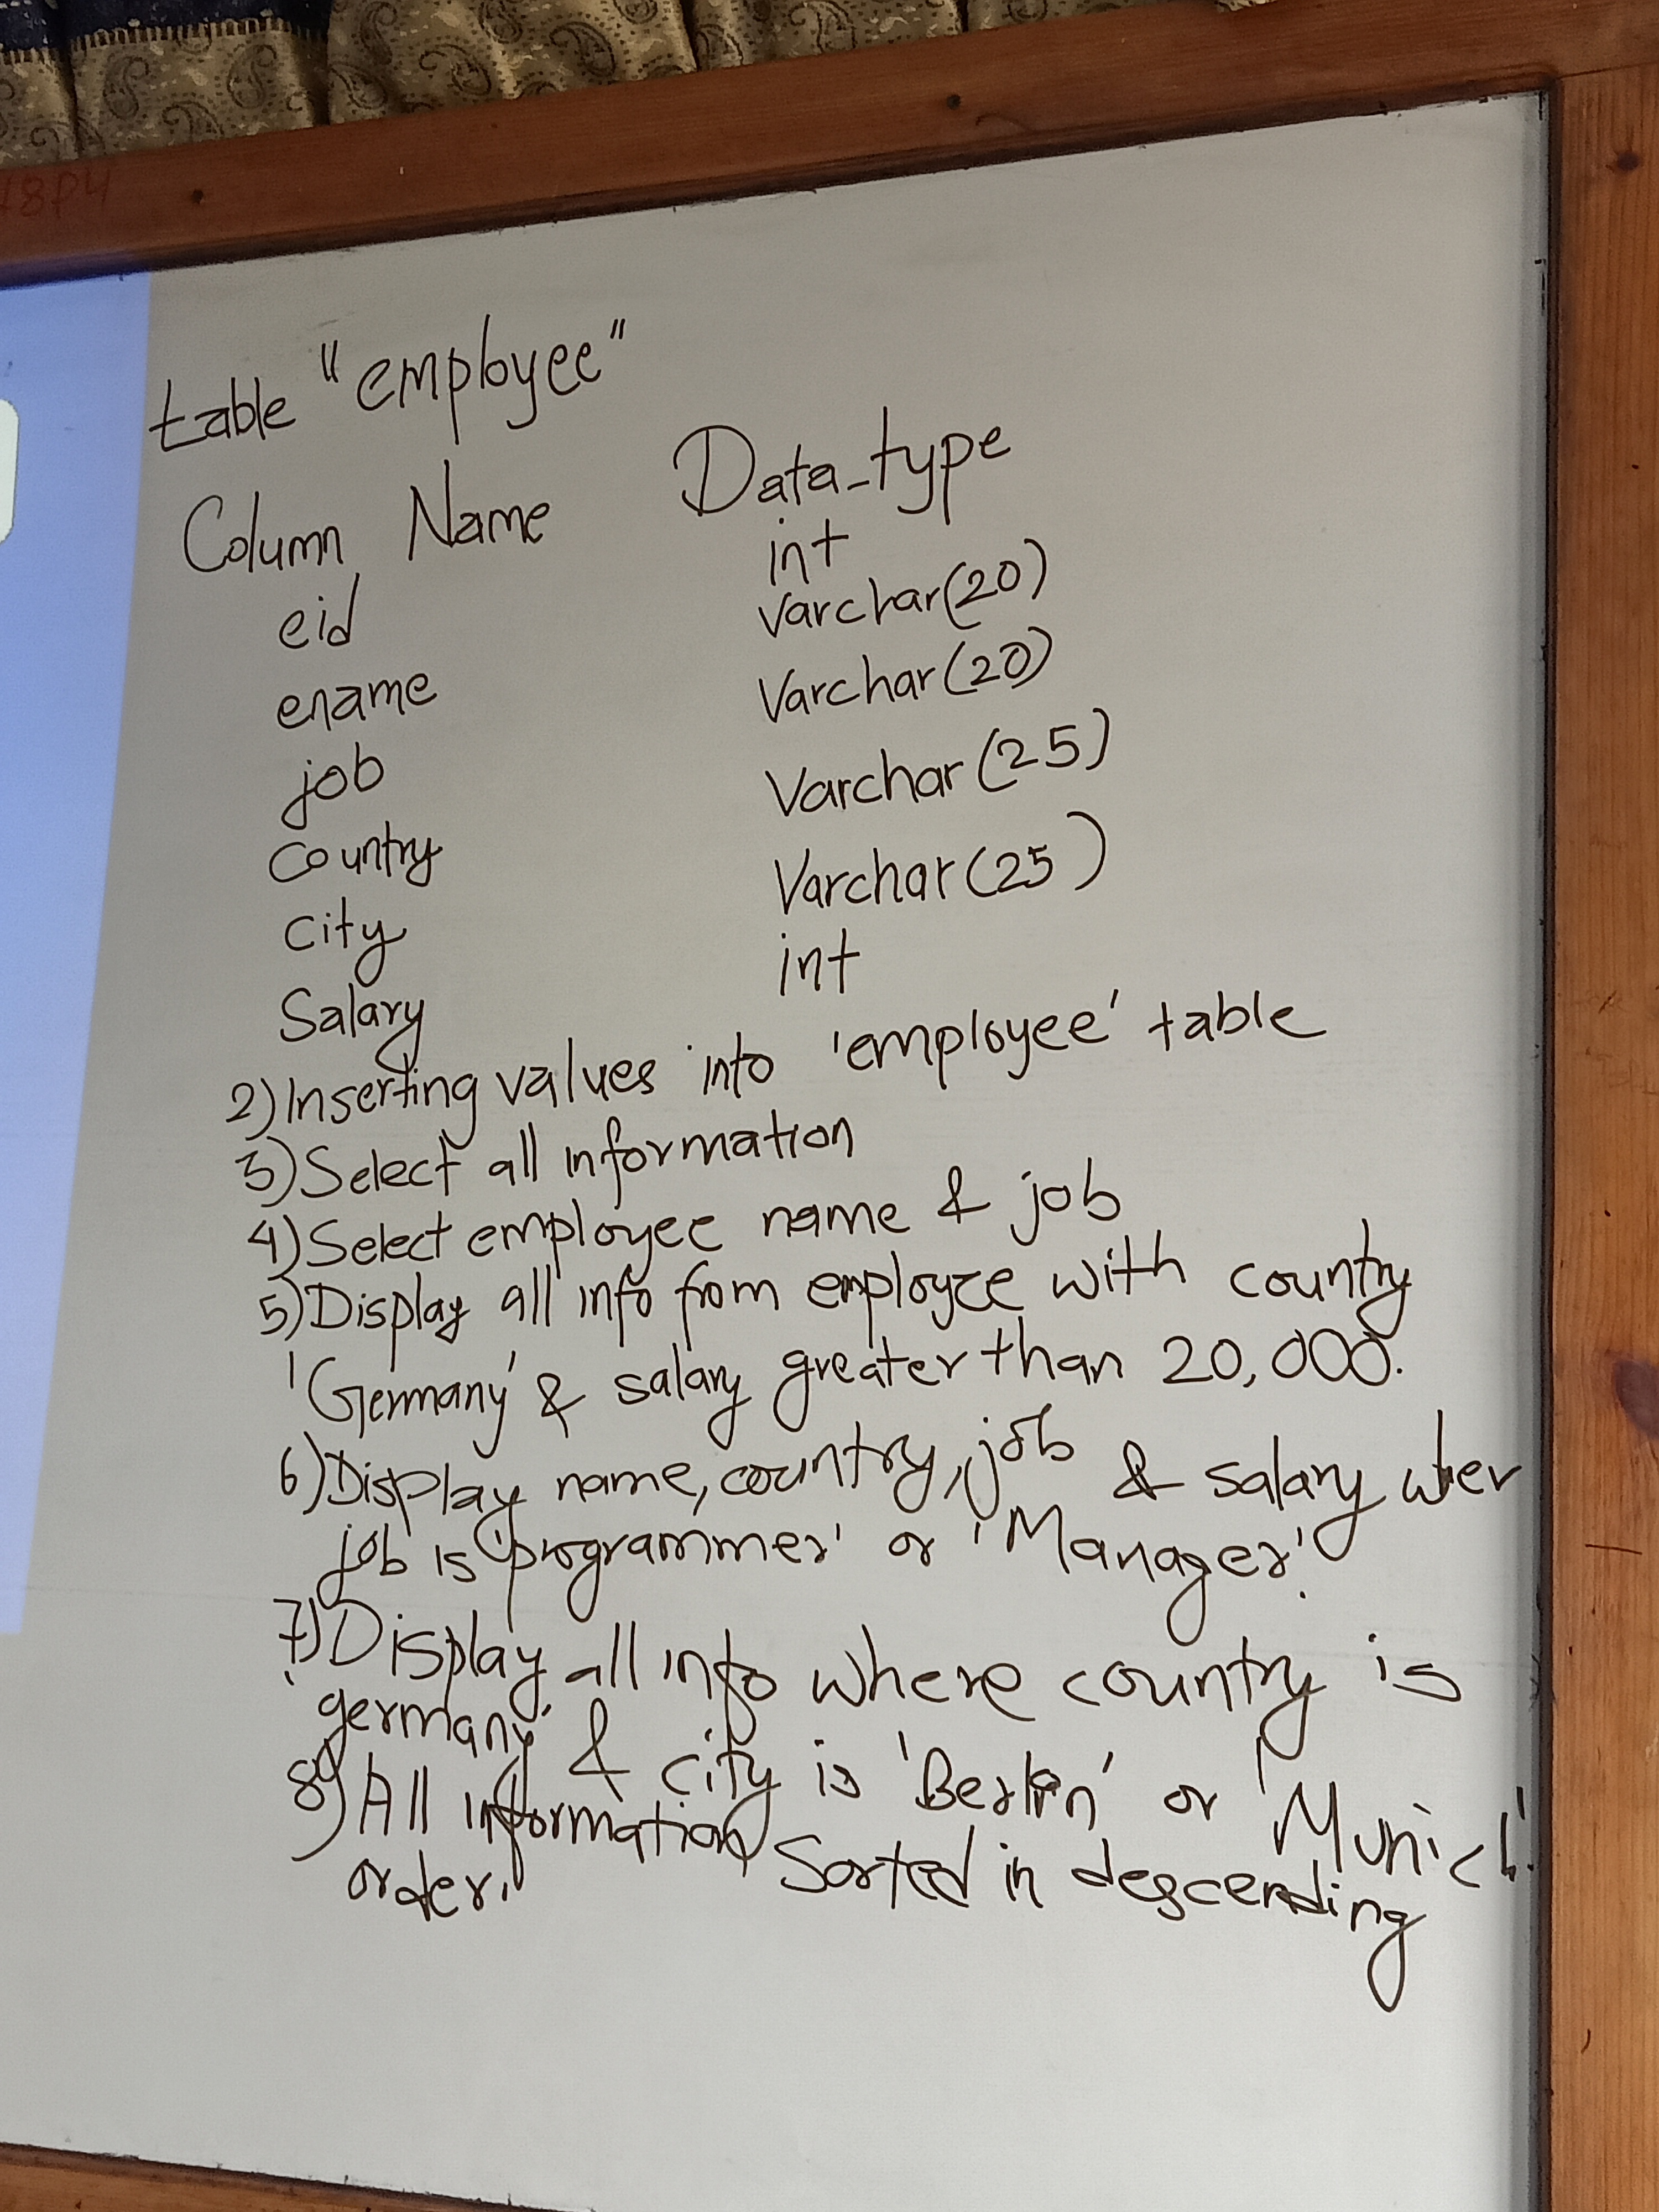 18P4
table "employee"
Column Name Data_type
eid int
ename varchar(20)
job Varchar(20)
country Varchar(25)
city Varchar(25)
Salary int
2) Inserting values into 'employee' table
3) Select all information
4) Select employee name & job
5) Display all info from employee with country
'Germany' & salary greater than 20,000.
6) Display name, country, job & salary wher
job is 'programmer' or 'Manager'.
7) Display all info where country is
germany' & city is 'Berlin' or 'Munich'
8) All information Sorted in descending
order.